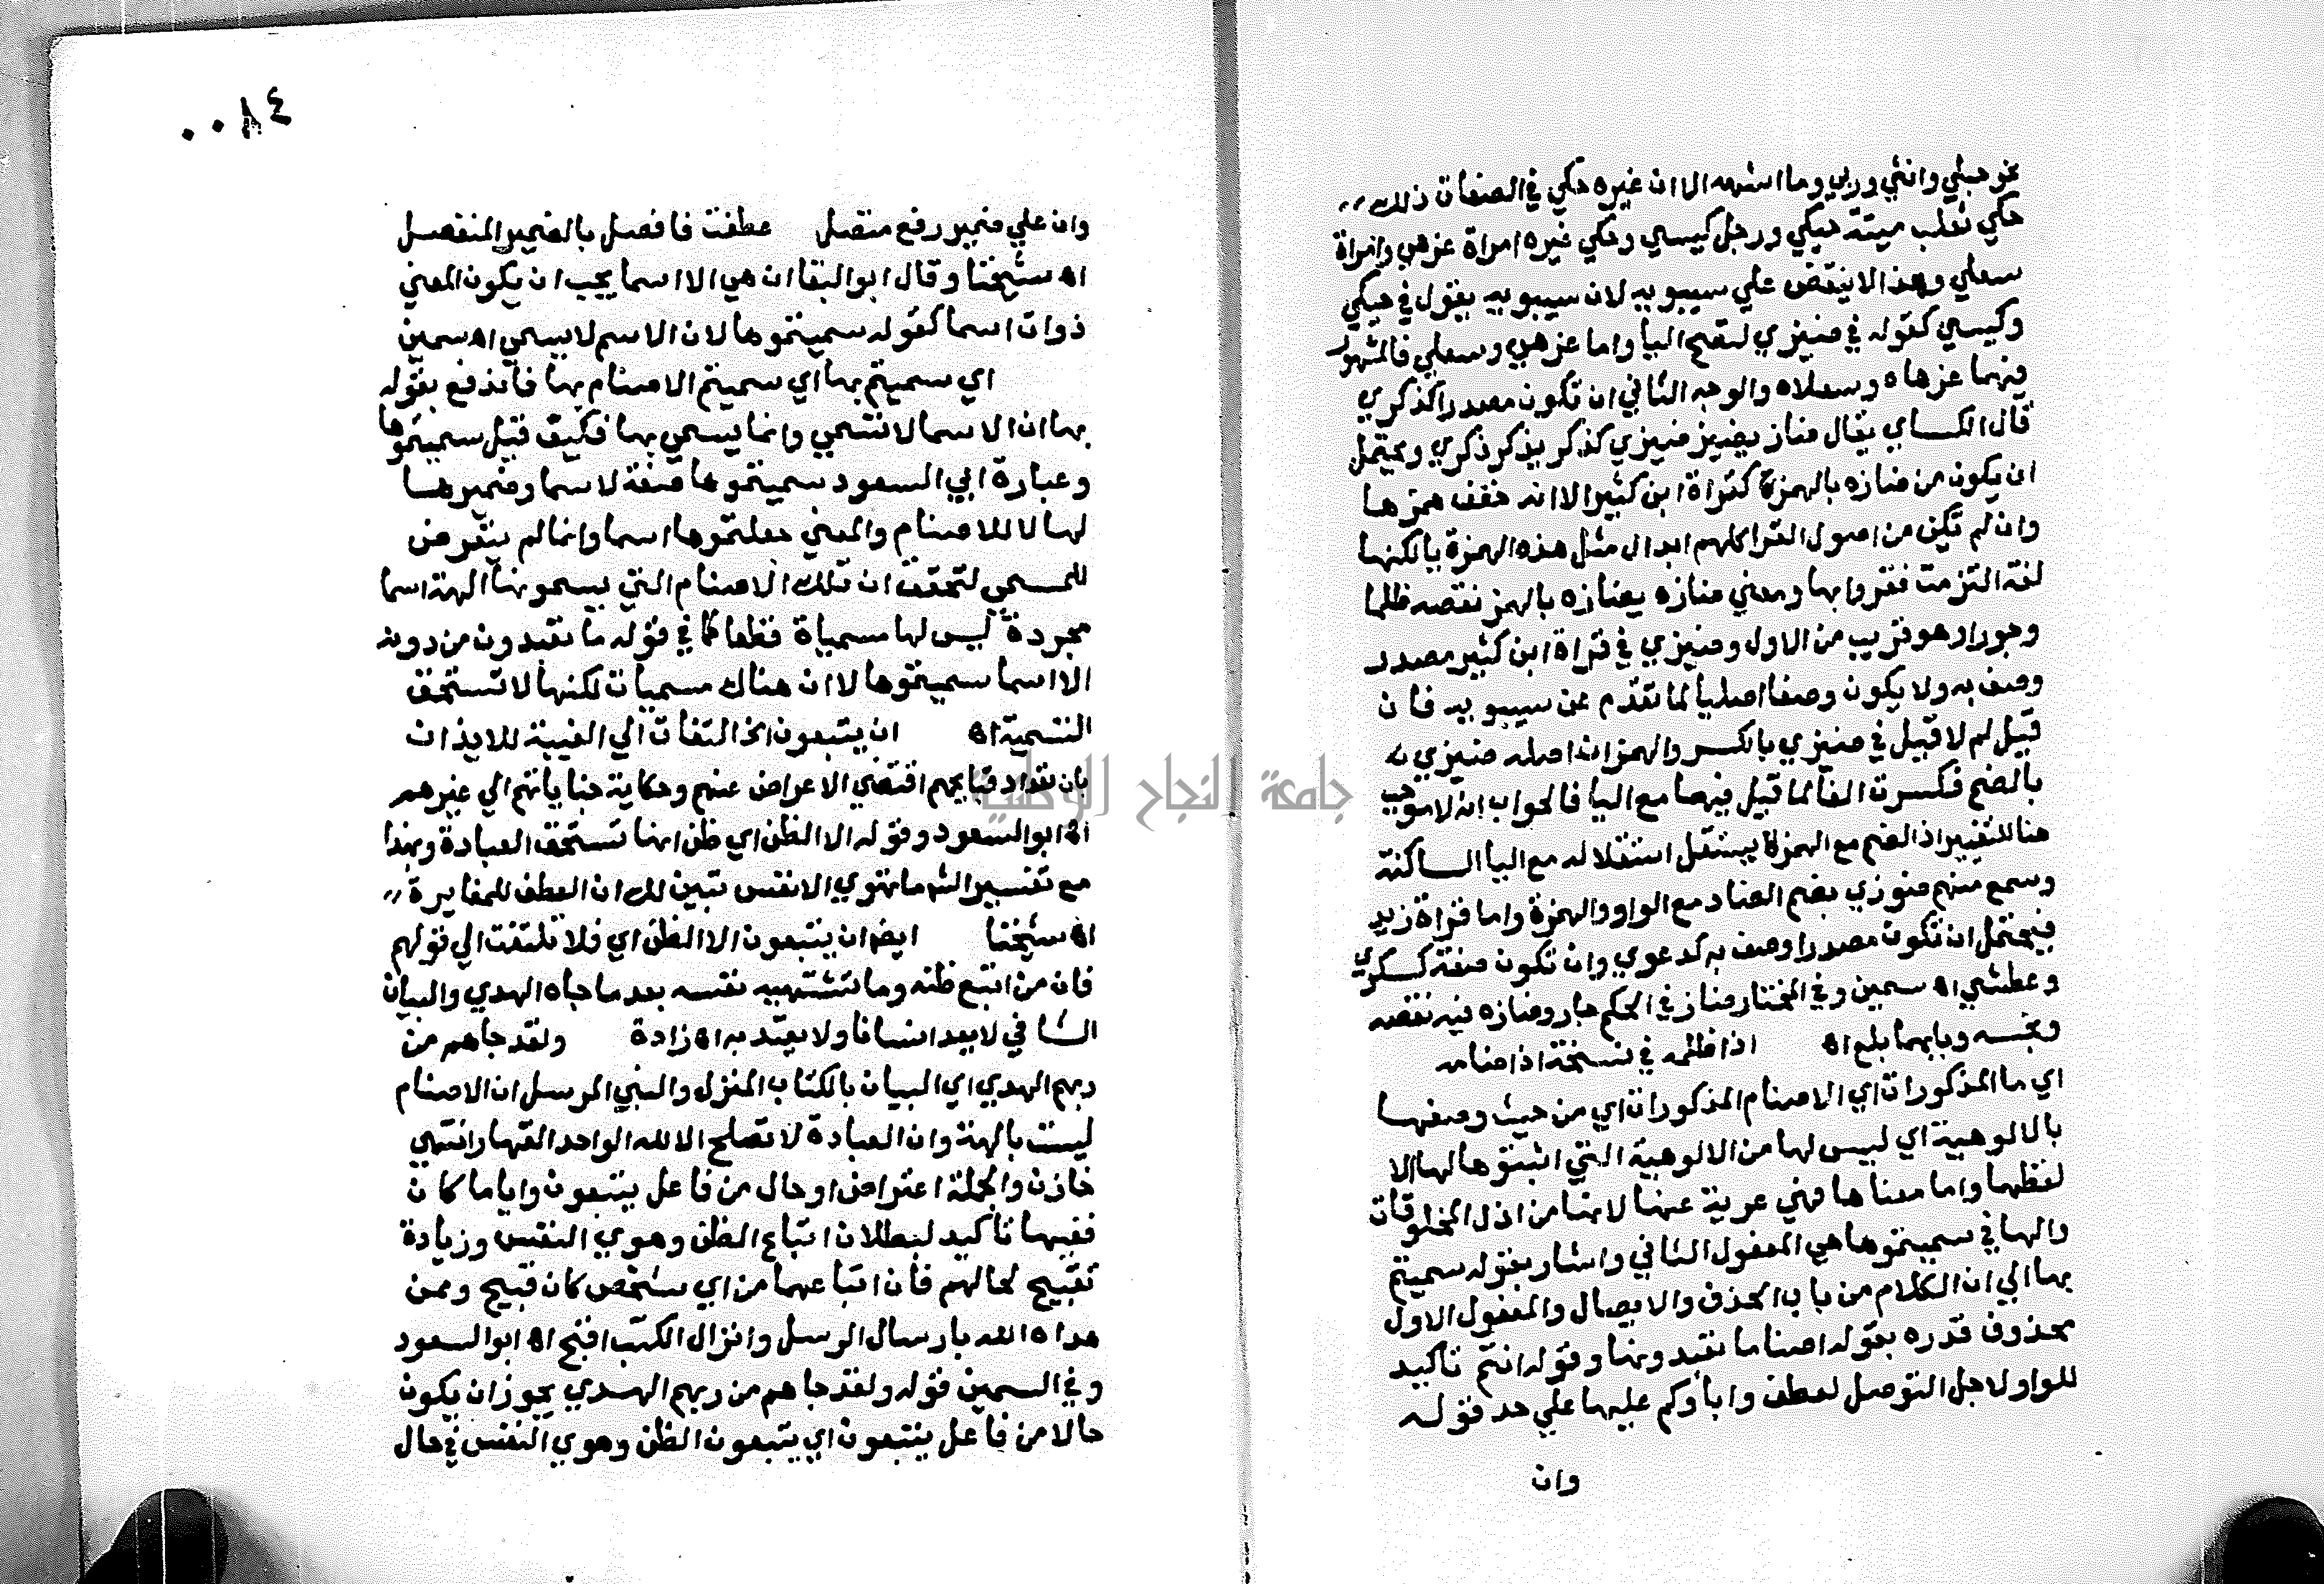 نحو حبلي وانثي وربي وما اشبهه الا ان غيره حكي في الصفات ذلك
حكي ثعلب ميتة حيكي ورجل كيسي وحكي غيره امراة عزهي وامراة
سعلي وهذا لا ينقض علي سيبويه لان سيبويه يقول في حيكي
وكيسي كقوله في ضيزي لتصح اليا واما عزهي وسعلي فالمشهور
فيهما عزهاه وسعلاه والوجه الثاني ان تكون مصدرا كذكري
قال الكساي يقال ضاز يضيز ضيزي كذكر يذكر ذكري ويحتمل
ان يكون من ضازه بالهمزة كقراة ابن كثير الا انه خفف همزها
وان لم تكن من اصول القرا كلهم ابدال مثل هذه الهمزة يا لكنها
لغة التزمت فقروا بها ومعني ضازه يضازه بالهمز نقصه ظلما
وجورا وهو قريب من الاول وضيزي في قراة ابن كثير مصدر
وصف به ولا يكون وصفا اصليا لما تقدم عن سيبويه فان
قيل لم لا قيل في ضيزي بالكسر والهمز ان اصله ضيزي
بالضم فكسرت الفا لما قيل فيها مع اليا فالجواب انه لا موجب
هنا للتغيير اذ الضم مع الهمزة يستقل استقلاله مع اليا الساكنة
وسمع منهم ضوزي بضم الضاد مع الواو والهمزة واما قراة زيد
فيحتمل ان تكون مصدرا وصف به كدعوي وان تكون صفة كسكري
وعطشي اه سمين وفي المختار ضاز في الحكم جار وضازه فيه نقصه
وبخسه وبابهما بلع اه اذا ظلمه في نسخة اذا ضامه
اي ما المذكورات اي الاصنام المذكورات اي من حيث وصفها
بالالوهية اي ليس لها من الالوهية التي اثبتوها لها الا
لفظها واما معناها فهي عرية عنها لانها من اذل المخلوقات
والها في سميتموها هي المفعول الثاني واشار بقوله سميتم
بها الي ان الكلام من باب الحذف والايصال والمفعول الاول
محذوف قدره بقوله اصناما تعبدونها وقوله انتم تاكيد
للواو لاجل التوصل لعطف واباوكم عليها علي حد قوله
وان
٠٠٨٤
وان علي ضمير رفع متصل عطفت فافصل بالضمير المنفصل
اه شيخنا وقال ابو البقا ان هي الا اسما يجب ان يكون المعني
ذوات اسما كقوله سميتموها لان الاسم لا يسمي اه سمين
اي سميتم بها اي سميتم الاصنام بها فاندفع بقوله
بها ان الاسما لا تسمي وانما يسمي بها فكيف قيل سميتموها
وعبارة ابي السعود سميتموها صفة لاسما وضميرها
لها لا للاصنام والمعني جعلتموها اسما وانما لم يتعرض
للمسمي لتحقق ان تلك الاصنام التي يسمونها الهة اسما
مجردة ليس لها مسمياة قطعا كما في قوله ما تعبدون من دونه
الا اسما سميتموها لا ان هناك مسميات لكنها لا تستحق
التسمية اه ان يتبعون الخ التفات الي الغيبة للايذان
بان تعداد قبايحهم اقتضي الاعراض عنهم وحكاية جناياتهم الي غيرهم
اه ابو السعود وقوله الا الظن اي ظن انها تستحق العبادة وبهذا
مع تفسير الش ما تهوي الانفس تبين لك ان العطف للمغايرة
اه شيخنا ايضا ان يتبعون الا الظن اي فلا تلتفت الي قولهم
فان من اتبع ظنه وما تشتهيه نفسه بعد ما جاه الهدي والبيان
الشافي لا يعد انسانا ولا يعتد به اه زادة ولقد جاهم من
ربهم الهدي اي البيان بالكتاب المنزل والنبي المرسل ان الاصنام
ليست بالهة وان العبادة لا تصلح الا لله الواحد القهار انتهي
خازن والجملة اعتراض او حال من فاعل يتبعون وايا ما كان
ففيها تاكيد لبطلان اتباع الظن وهوي النفس وزيادة
تقبيح لحالهم فان اتباعهما من اي شخص كان قبيح وممن
هداه الله بارسال الرسل وانزال الكتب اقبح اه ابو السعود
وفي السمين قوله ولقد جاهم من ربهم الهدي يجوز ان يكون
حالا من فاعل يتبعون اي يتبعون الظن وهوي النفس في حال
جامعة النجاح الوطنية